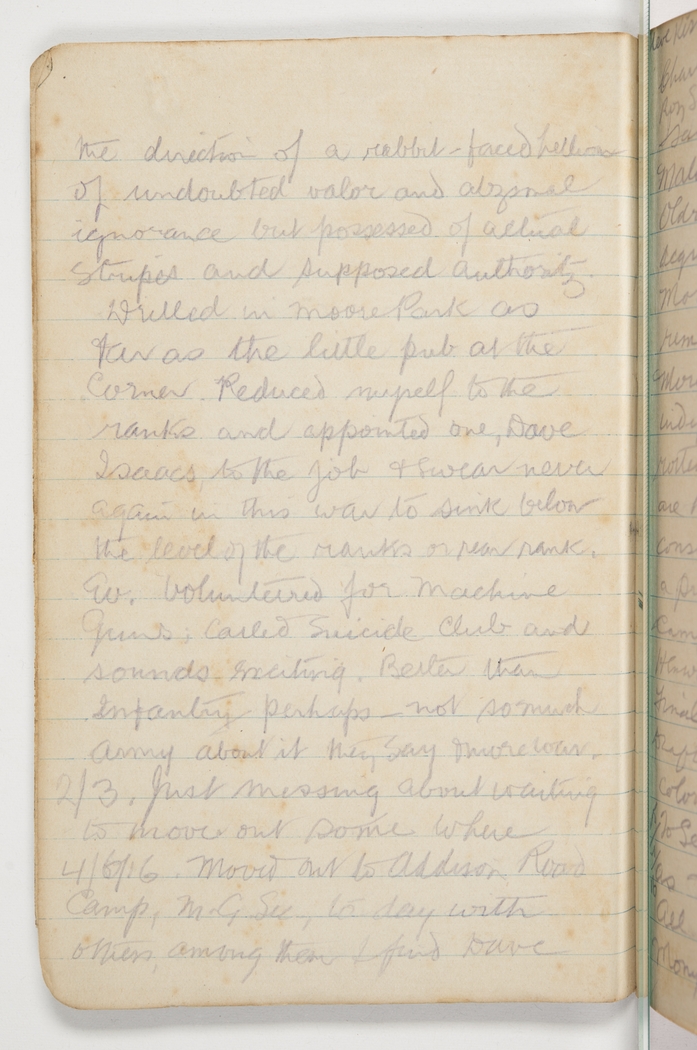 the direction of a rabbit-faced hellion
of undoubted valor and abysmal
ignorance but possessed of actual
stripes and supposed authority.
Drilled in Moore Park as
far as the little pub at the
Corner. Reduced myself to the
ranks and appointed one, Dave
Isaacs, to the job & swear never
again in this war to sink below
the level of the ranks or rear rank.
Ev. Volunteered for Machine
Guns; Called Suicide Club and
sounds exciting. Better than
Infantry perhaps - not so much
army about it they say & more war.
2/3. Just messing about waiting
to move out some where
4/6/16. Moved out to Addison Road
Camp, M.G. Sec, to day with
others, among them I find Dave